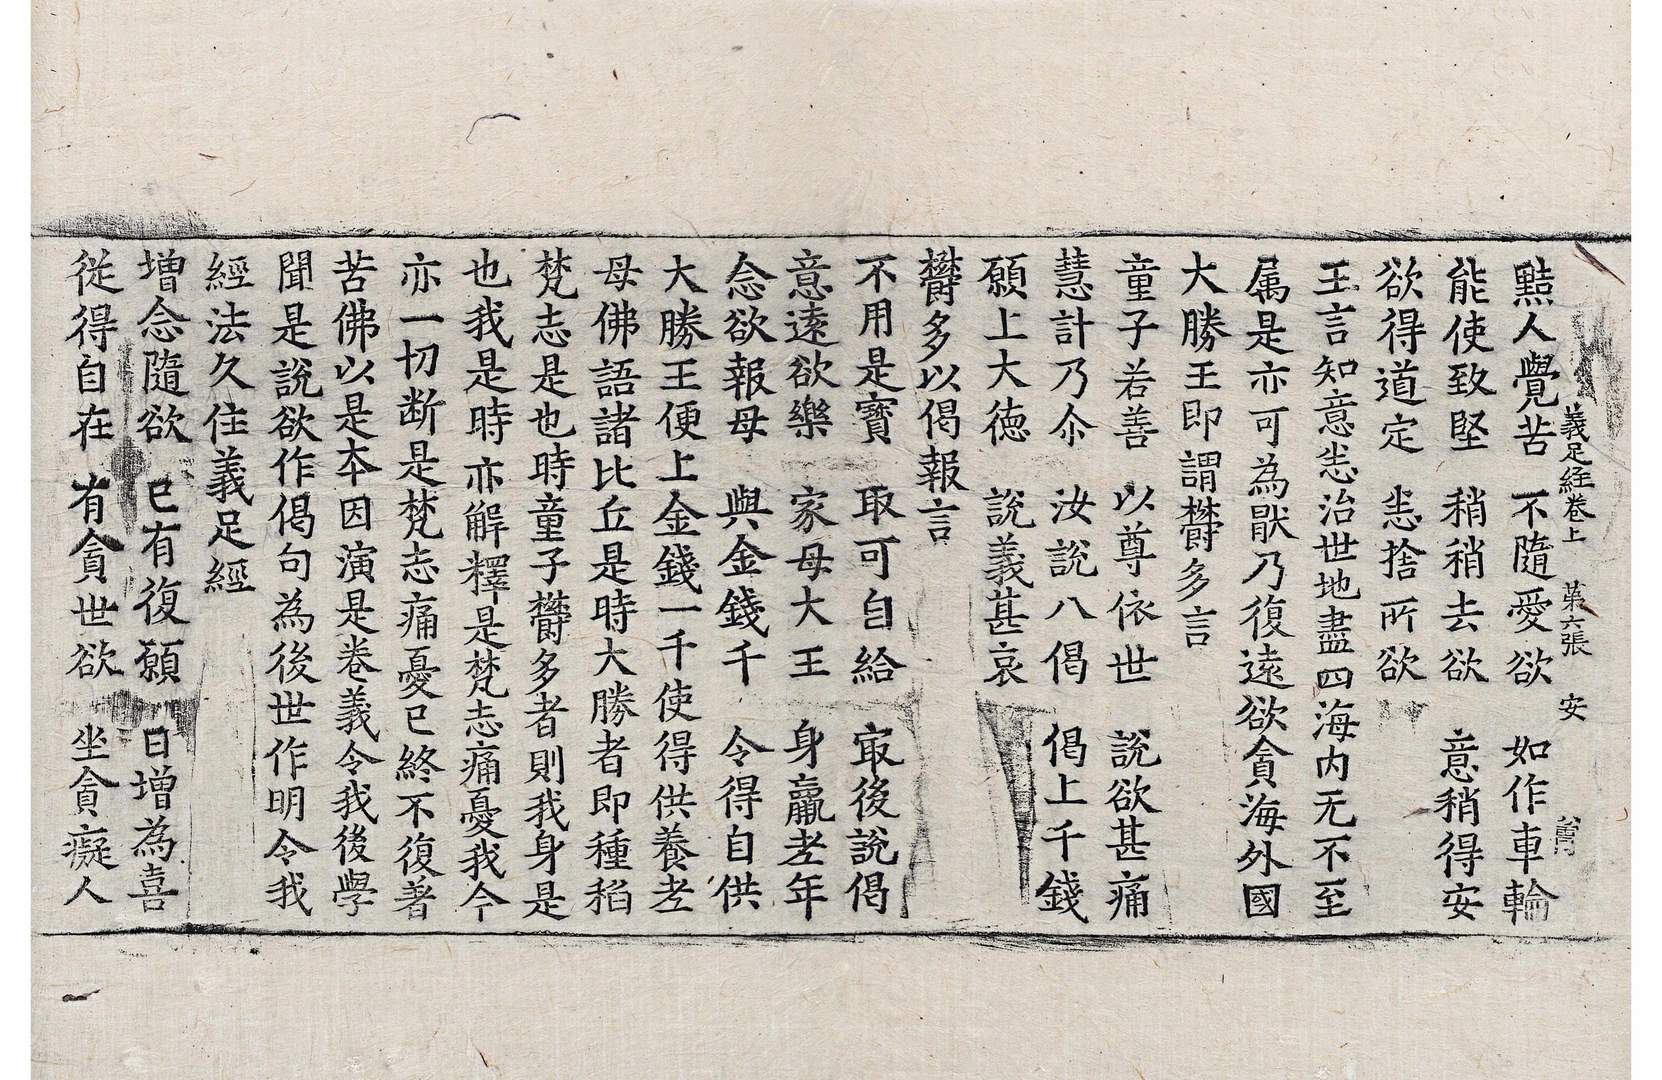 義足經卷上 第六張 安
黠人覺苦 不隨愛欲 如作車輪
能使致堅 稍稍去欲 意稍得安
欲得道定 恙捨所欲
王言知意恙治世地盡四海內无不至
属是亦可為猒乃復遠欲貪海外國
大勝王即謂欝多言
童子若善 以尊依世 說欲甚痛
慧計乃尒 汝說八偈 偈上千錢
願上大德 說義甚哀
欝多以偈報言
不用是寶 取可自給 㝡後說偈
意遠欲樂 家母大王 身羸老年
念欲報母 與金錢千 令得自供
大勝王便上金錢一千使得供養老
母佛語諸比丘是時大勝者即種稻
梵志是也時童子欝多者則我身是
也我是時亦解釋是梵志痛憂我今
亦一切断是梵志痛憂已終不復著
苦佛以是夲因演是卷義令我後學
聞是說欲作偈句為後世作明令我
經法久住義足經
增念隨欲 已有復願 日增為喜
從得自在 有貪世欲 坐貪癡人